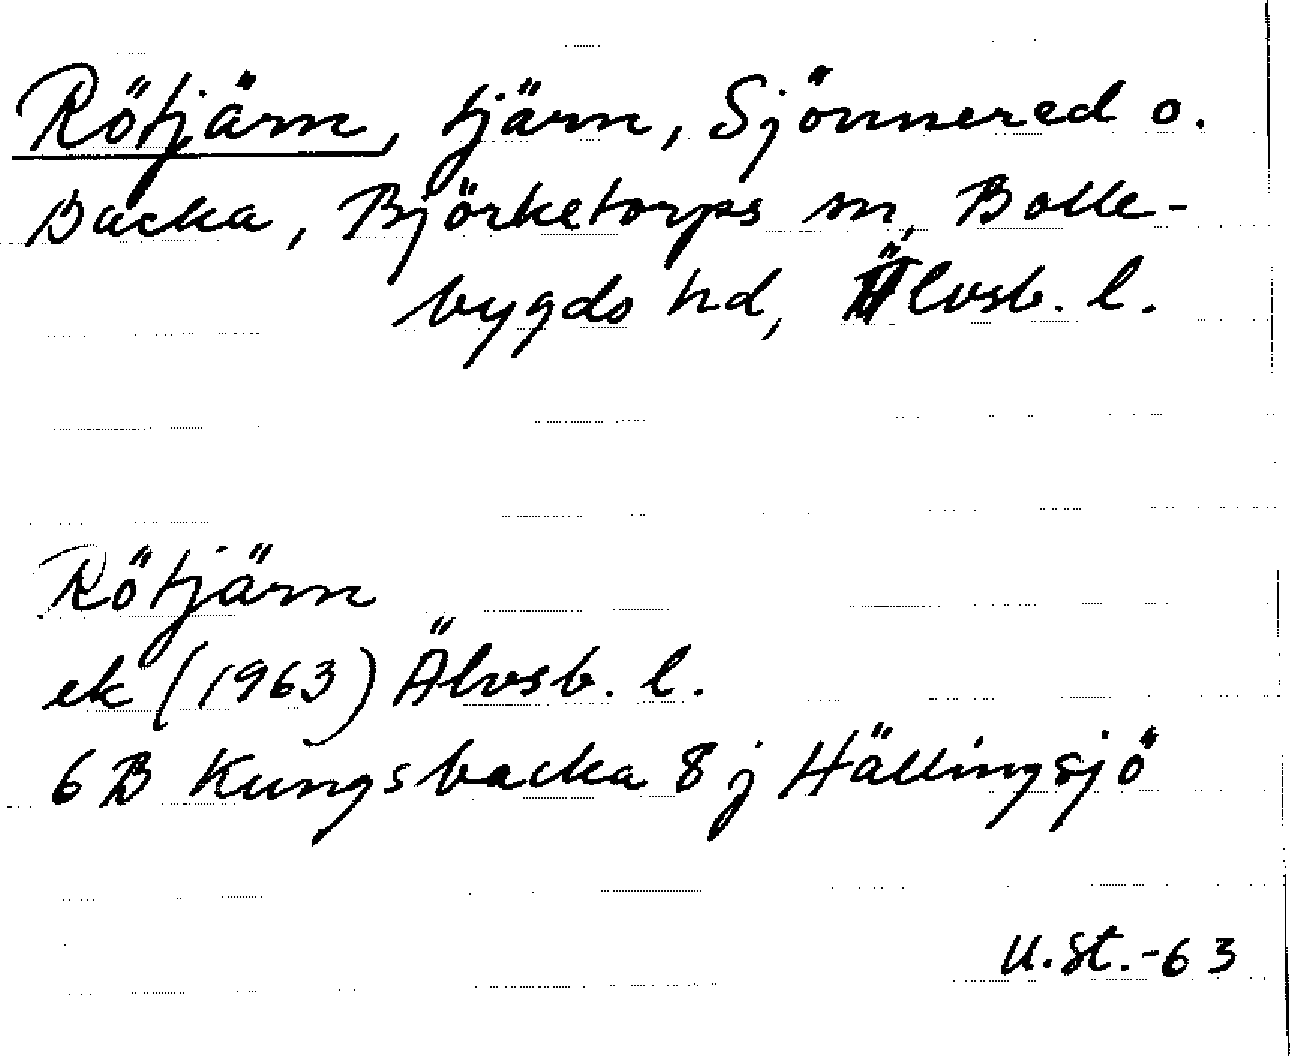 Rötjärn, tjärn, Sjönnered o.
Backa, Björketorps sn, Bolle-
bygds hd, Älvsb. l.
Rötjärn
ek (1963) Älvsb. l.
6 B Kungsbacka 8 j Hällingsjö
U.St.-63